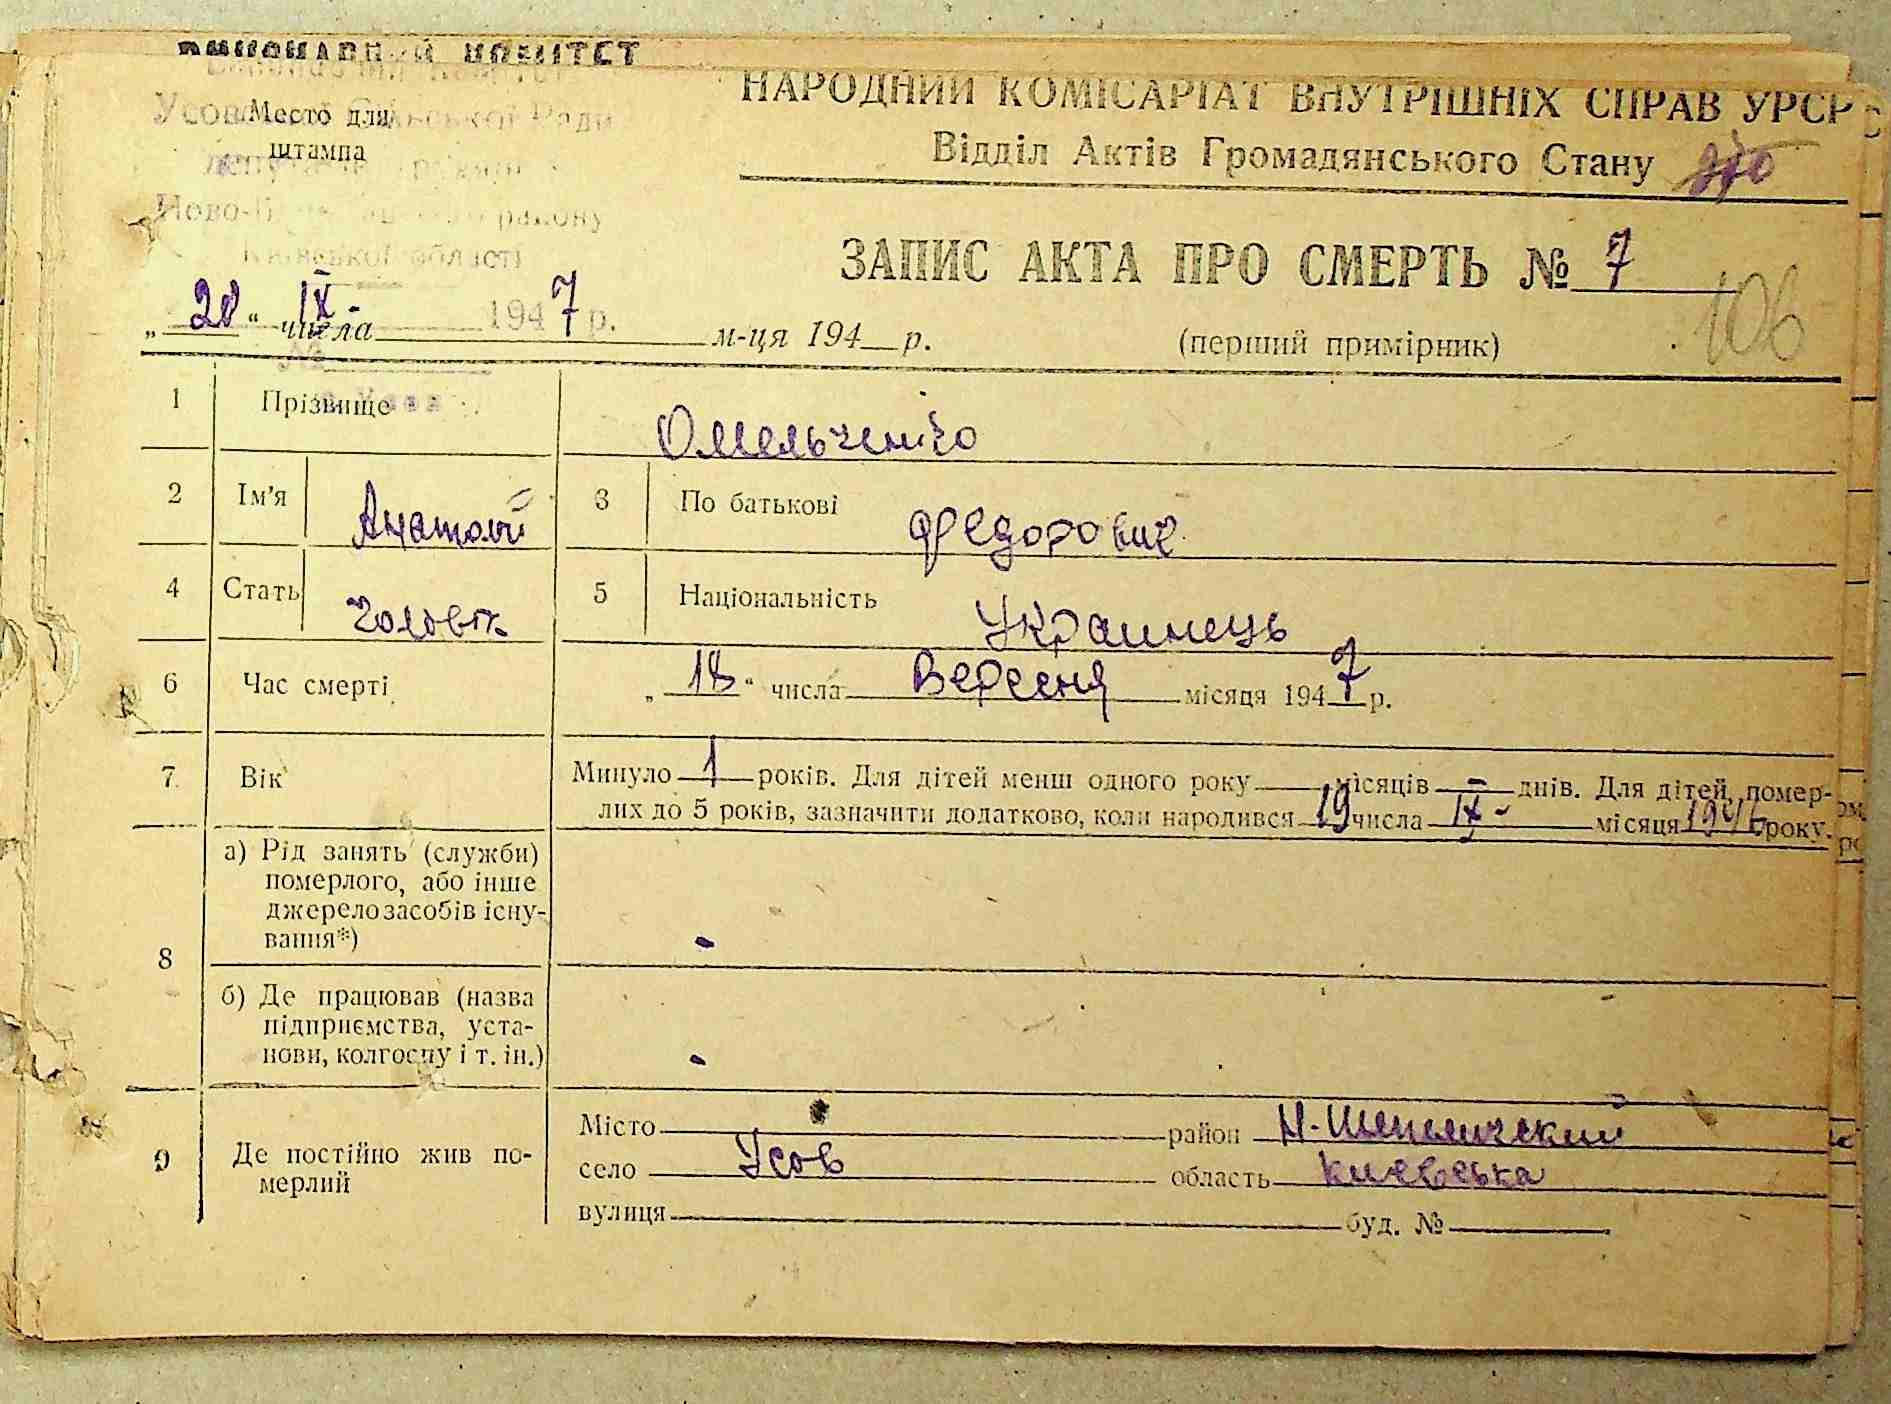 ВИКОНАВЧИЙ КОМІТЕТ
Место для
штампа
Ново- району
Київської області
НАРОДНИЙ КОМІСАРІАТ ВНУТРІШНІХ СПРАВ УРСР
Відділ Актів Громадянського Стану
ЗАПИС АКТА ПРО СМЕРТЬ № 7
106
„20“ IX 1947 р.
числа м-ця 194 р.
(перший примірник)
1 Прізвище Омельченко
2 Ім'я Анатолий 3 По батькові Федорович
4 Стать чоловік 5 Національність Украинець
6 Час смерті „18“ числа Вересня місяця 1947 р.
7 Вік Минуло 1 років. Для дітей менш одного року місяців – днів. Для дітей, помер-
лих до 5 років, зазначити додатково, коли народився 19 числа IX- місяця року.
8 а) Рід занять (служби)
померлого, або інше
джерело засобів існу-
вання*) -
б) Де працював (назва
підприємства, уста-
нови, колгоспу і т. ін.) -
9 Де постійно жив по-
мерлий
Місто район Н-Шепеличский
село Усов область Киевська
вулиця буд. №